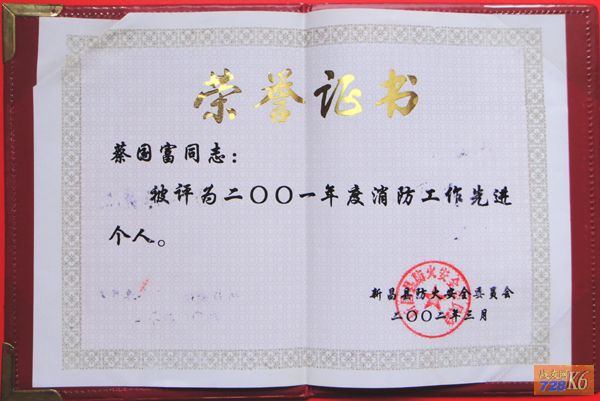 荣誉证书
蔡国富同志：
被评为二〇〇一年度消防工作先进
个人。
新昌县防火安全委员会
二〇〇二年三月
战友网
728K6